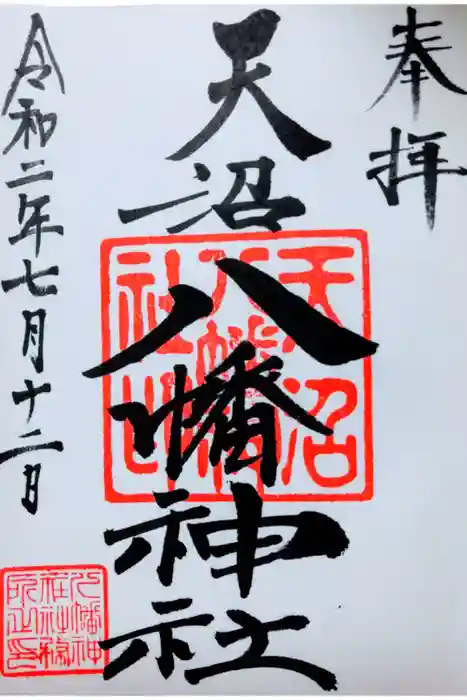 奉拝
天沼八幡神社
令和二年七月十二月
天沼
八幡
社印